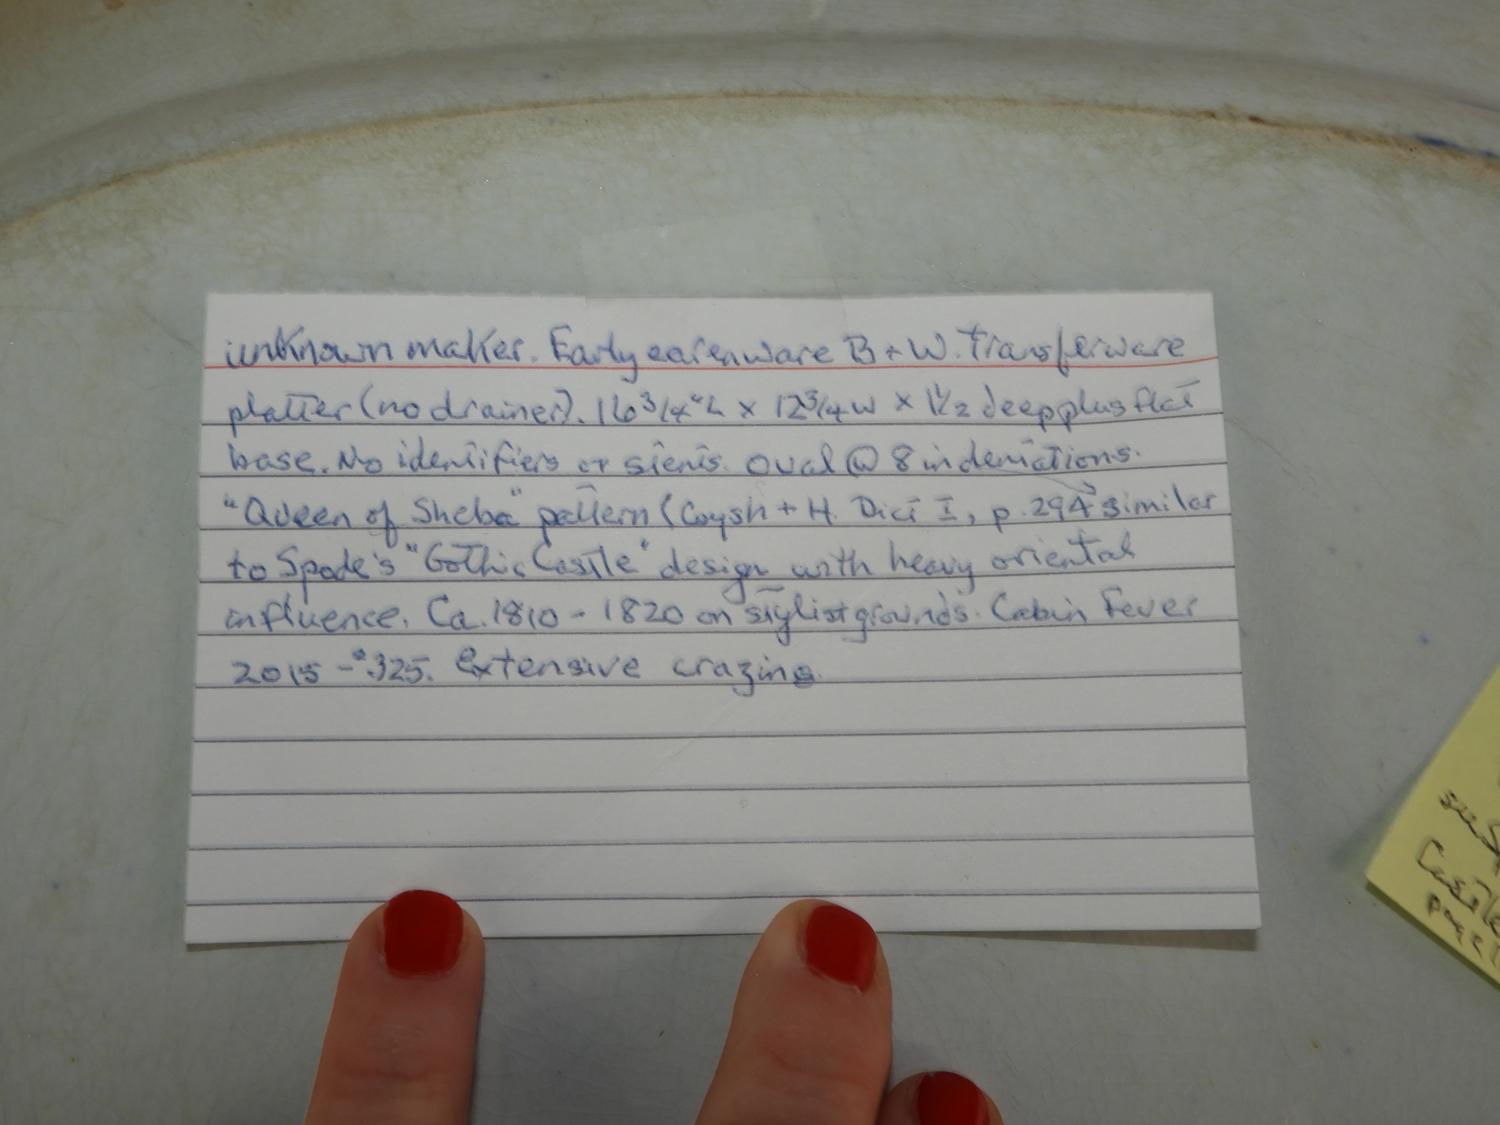 unknown maker. Early earenware B + W. Transferware
platter (no drainer). 16 3/4" L x 12 3/4 W x 1 1/2 deep plus flat
base. No identifiers or stents. Oval @ 8 indentations.
"Queen of Sheba" pattern (Coysh + H. Dict I, p. 294 similar
to Spode's "Gothic Castle" design with heavy oriental
influence. Ca. 1810 - 1820 on stylist grounds. Cabin Fever
2015 - $325. Extensive crazing.
see
Castle
page